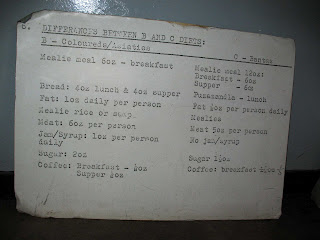 8. DIFFERANCES BETWEEN B AND C DIETS:
B - Coloureds/Asiatics
C - Bantus
Mealie meal 6oz - breakfast
Mealie meal 12oz:
Breakfast - 6oz
Supper - 6oz
Bread: 4oz lunch & 4oz supper
Puzamandla - lunch
Fat: 1oz daily per person
Fat ½oz per person daily
Mealie rice or samp
Mealies
Meat: 6oz per person
Meat 5oz per person
Jam/Syrup: 1oz per person
daily
No jam/syrup
Sugar: 2oz
Sugar 1½oz
Coffee: Breakfast -
Supper
Coffee: breakfast